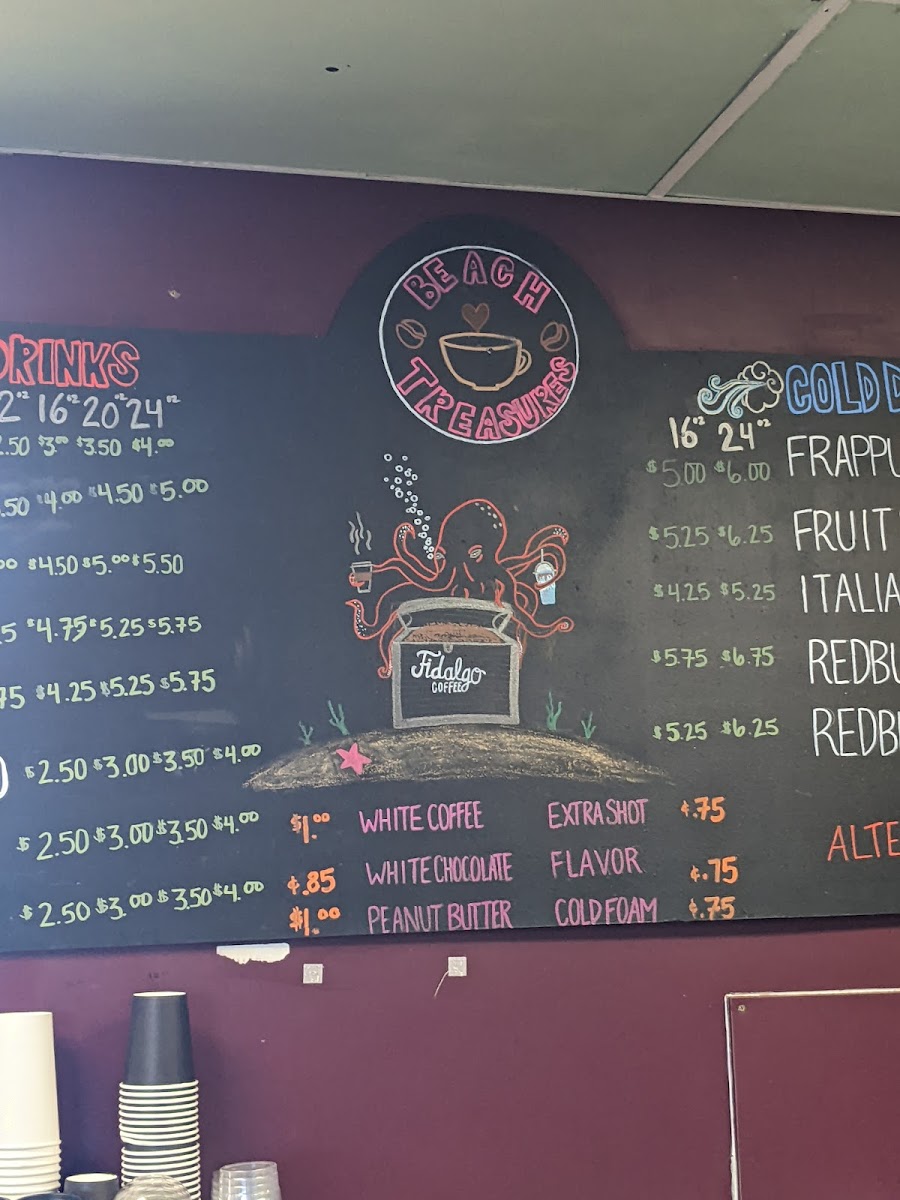 BEACH
TREASURES
DRINKS
16oz 20oz 24oz
$3.00 $3.50 $4.00
$4.00 $4.50 $5.00
$4.50 $5.00 $5.50
$4.75 $5.25 $5.75
$4.25 $5.25 $5.75
$2.50 $3.00 $3.50 $4.00
$2.50 $3.00 $3.50 $4.00
$2.50 $3.00 $3.50 $4.00
Fidalgo
COFFEE
$1.00 WHITE COFFEE EXTRA SHOT ¢.75
¢.85 WHITE CHOCOLATE FLAVOR ¢.75
$1.00 PEANUT BUTTER COLD FOAM ¢.75
COLD D
16oz 24oz
$5.00 $6.00 FRAPPU
$5.25 $6.25 FRUIT
$4.25 $5.25 ITALIA
$5.75 $6.75 REDBU
$5.25 $6.25 REDB
ALTE